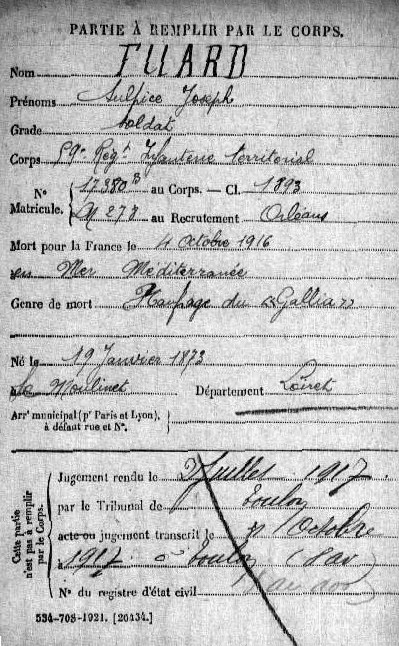 PARTIE À REMPLIR PAR LE CORPS.
Nom TUARD
Prénoms Sulpice Joseph
Grade Soldat
Corps 59e Régt Infanterie territorial
No Matricule. 17380 B au Corps. — Cl. 1893
M 278 au Recrutement Orléans
Mort pour la France le 4 Octobre 1916
en Mer Méditerranée
Genre de mort Naufrage du "Gallia"
Né le 19 Janvier 1873
à Moulinet Département Loiret
Arrt municipal (pr Paris et Lyon),
à défaut rue et No.
Cette partie n'est pas à remplir par le Corps.
Jugement rendu le Juillet 1917
par le Tribunal de Toulon
acte ou jugement transcrit le Octobre
1917 à Toulon (Var
No du registre d'état civil
534-708-1921. [26434.]